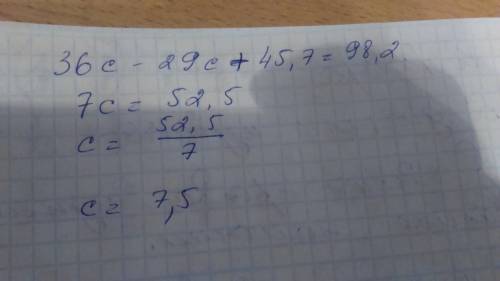 36c - 29c + 45,7 = 98,2
7c = 52,5
c = 52,5/7
c = 7,5